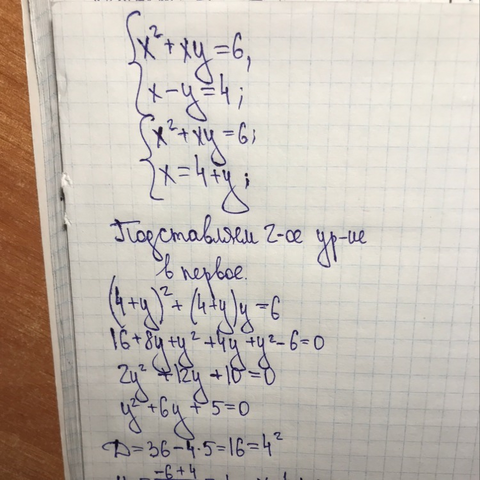 {x²+xy=6,
{x-y=4;
{x²+xy=6;
{x=4+y;
Подставляем 2-ое ур-ие
в первое.
(4+y)²+(4+y)y=6
16+8y+y²+4y+y²-6=0
2y²+12y+10=0
y²+6y+5=0
D=36-4·5=16=4²
-6+4